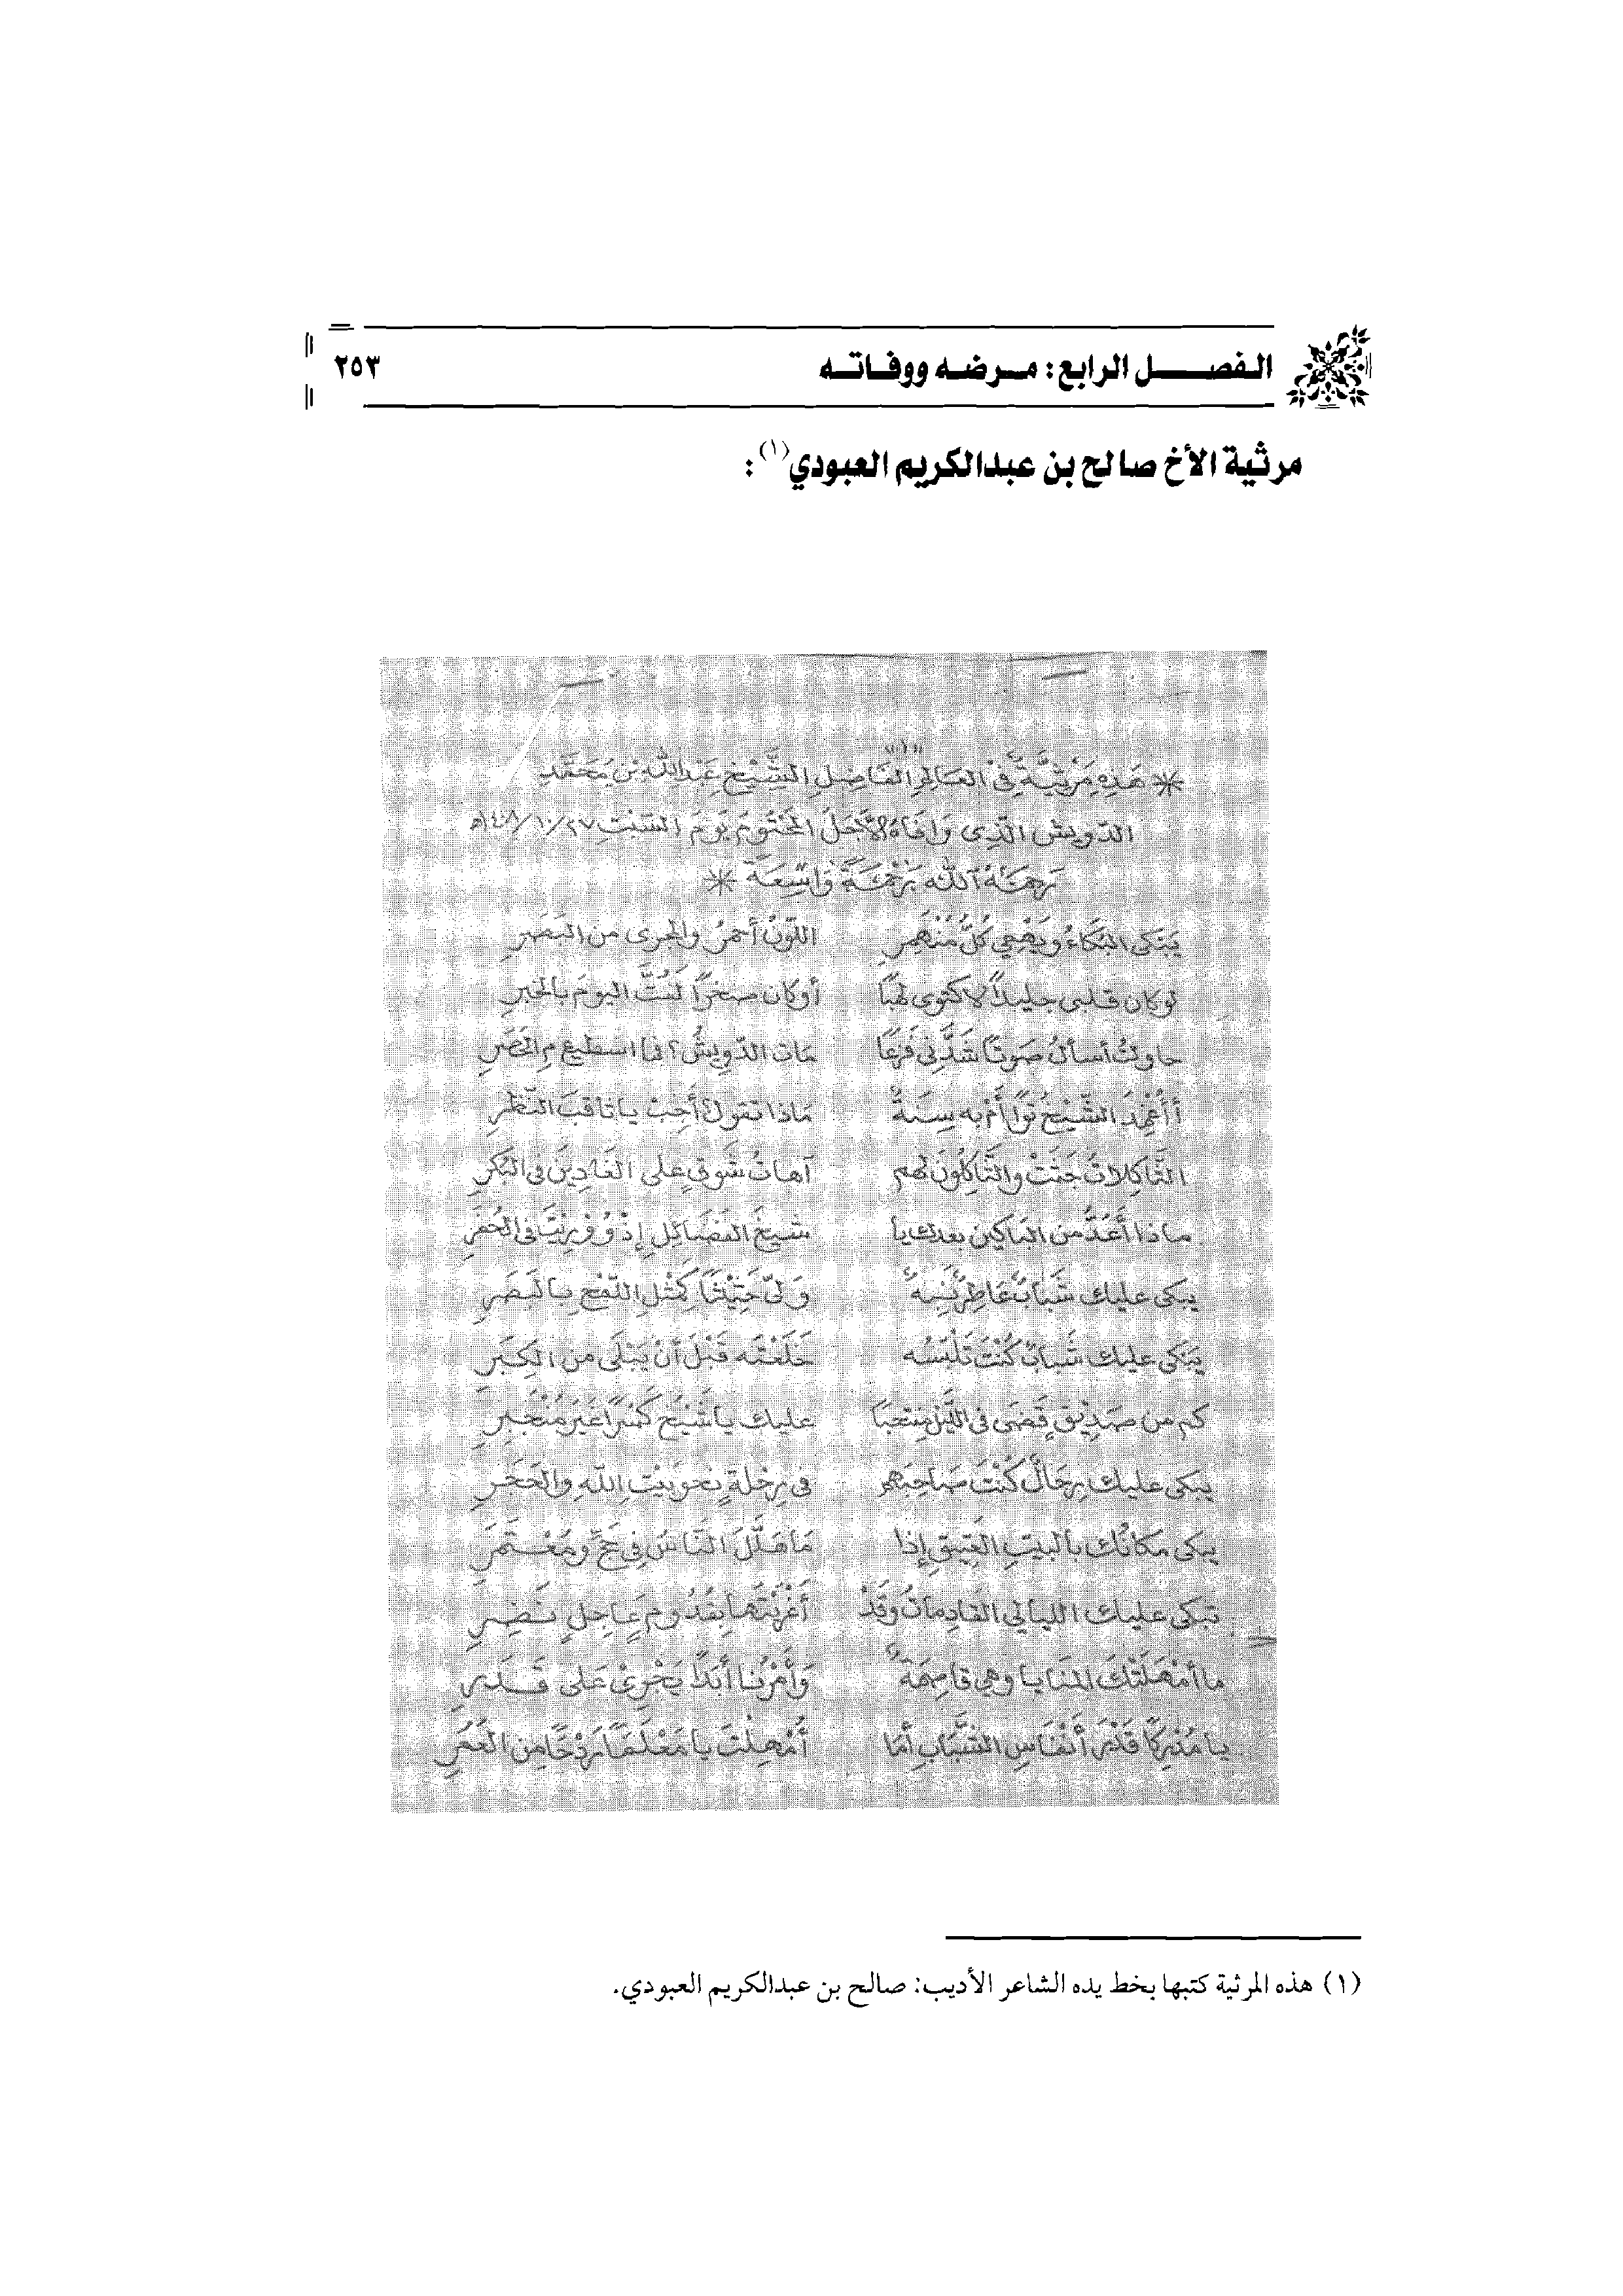 الفصل الرابع: مرضه ووفاته ٢٥٣
مرثية الأخ صالح بن عبدالكريم العبودي(١):
«١»
* هَذِهِ مَرْثِيَّةٌ فِي العَالِمِ الفَاضِلِ الشَّيْخِ عَبْدِاللهِ بْنِ مُحَمَّدٍ
الدّويش الّذِي وَافَاهُ الأَجَلُ المَحْتُومُ يَوْمَ السَّبْتِ ٢٧/١٠/١٤٠٨هـ
رَحِمَهُ اللهُ رَحْمَةً وَاسِعَةً *
يَبْكِي البُكَاءُ ويَهْمِي كُلُّ مُنْهَمِرِ اللّوْنُ أحمرُ والمجرى من البَصَرِ
لو كان قلبي جليداً لاكتوى لهباً أو كان صخراً لَفُتَّ اليومَ بالخبرِ
حاولتُ أسألُ صوتاً شَدَّنِي فَزَعًا مات الدّويشُ؟ فما اسطيع مِ الحَصَرِ
أأُغْمِدَ الشّيْخُ تَوًّا أمْ به سِنَةٌ ماذا تقول أَجِبْ يا ثاقبَ النّظرِ
الثّاكِلاتُ جَثَتْ والثّاكِلُونَ لهم آهاتُ شَوقٍ على الغَادِينَ في البُكَرِ
ماذا أَعُدُّ من الباكين بعدك يا شيخَ الفَضَائِلِ إذْ وُورِيْتَ في الحُفَرِ
يبكى عليك شَبَابٌ عَاطِرٌ وَلّى حَثِيْثًا كَمِثْلِ اللّمْحِ بالبَصَرِ
يَبْكى عليك شَبابٌ كُنْتَ تَلْبَسُه خَلَعْتَه قَبْلَ أَنْ يَبْلَى من الكِبَرِ
كم من صَدِيْقٍ قَضَى في اللَّيْلِ مُنتحِبًا عليك يا شَيْخ كَسْراً غَيْرَ مُنْجَبِرِ
يبكي عليك رِجَالٌ كُنْتَ صَاحِبَهم في رِحْلةٍ نحو بَيْتِ اللهِ والحَجَرِ
يبكي مكانُك بالبيتِ العَتِيقِ إذا مَا هَلَّلَ النّاسُ فِي حَجٍّ ومُعْتَمَرِ
تبكى عليك الليالي القادِماتُ وقَدْ أَغْرَيْتَها بِقُدُومٍ عَاجِلٍ نَضِرِ
ما أمْهَلَتْكَ المنَايا وهي قاصِمَةٌ وَأَمْرُنا أبَدًا يَجْرِيْ عَلى قَدَرِ
يا مُدْرِكًا قَدْرَ أَنْفَاسِ الشَّبَابِ أَمَا أُمْهِلْتَ يا مَعْلَمًا رَدْحًا مِن العُمُرِ
(١) هذه المرثية كتبها بخط يده الشاعر الأديب: صالح بن عبدالكريم العبودي.